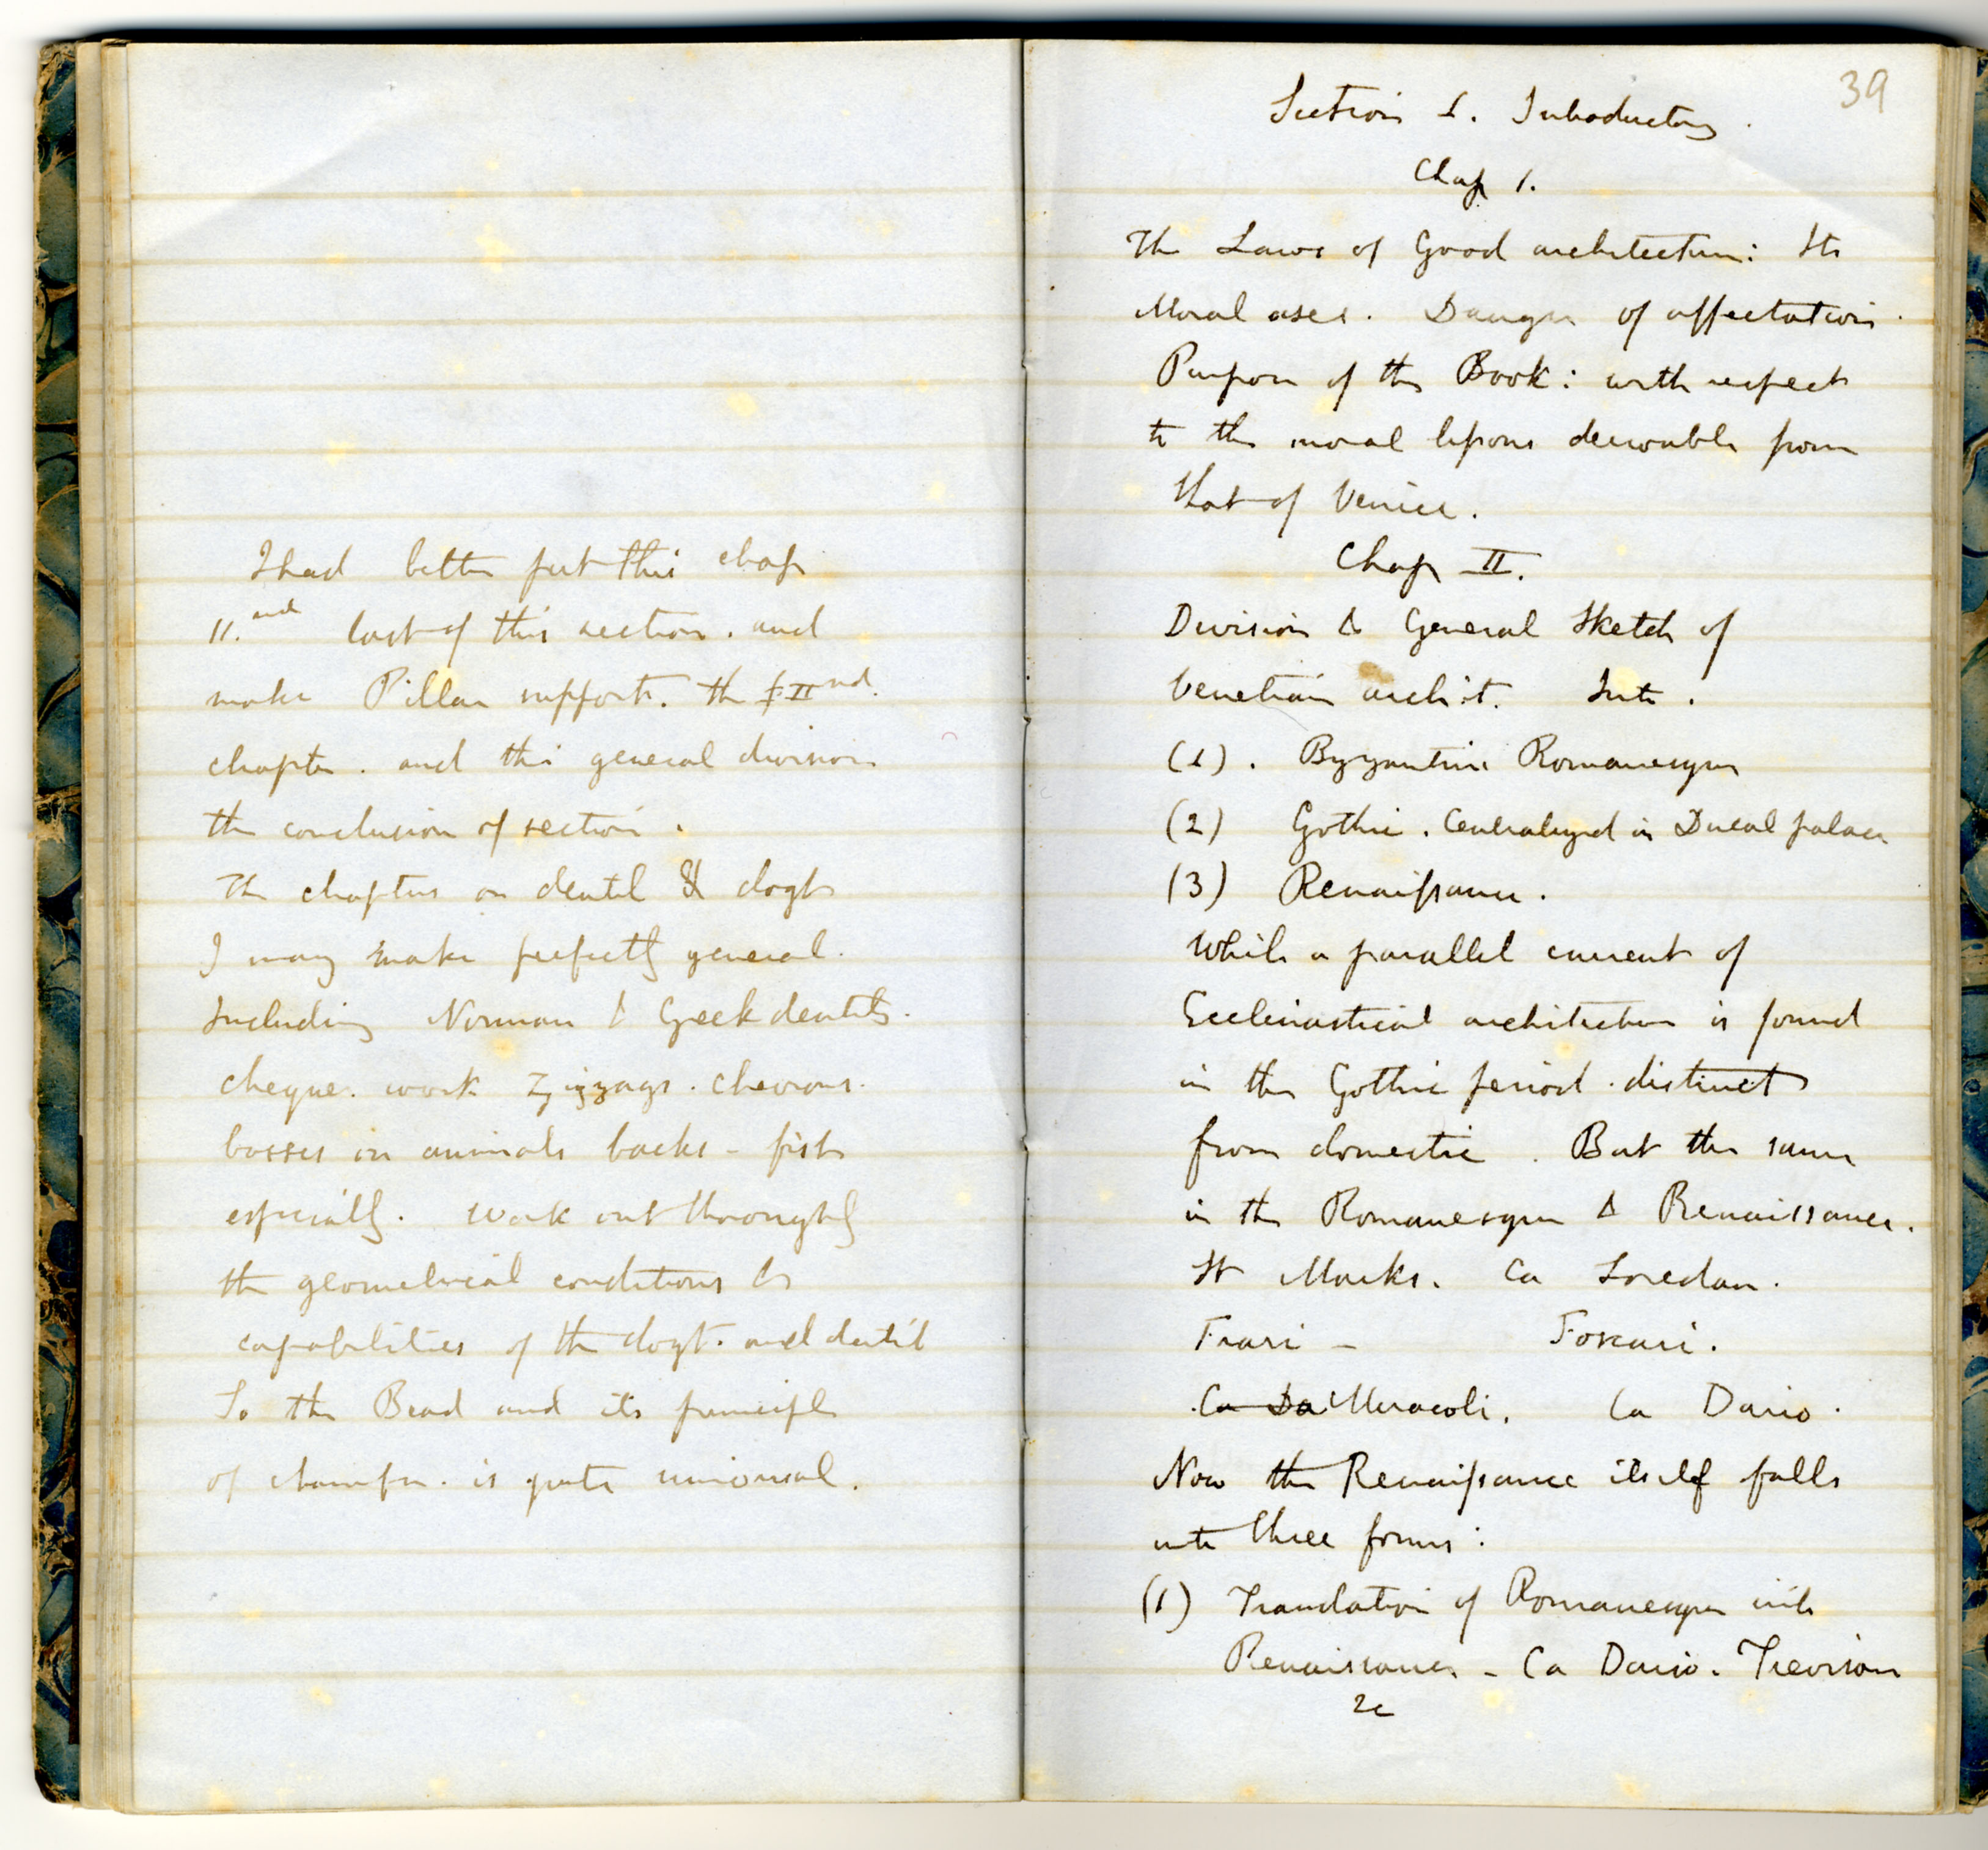 I had better put this chap
II.nd last of this section. and
make Pillar support. the IInd.
chapter. and this general division
the conclusion of section.
The chapters on dentil & dogt
I may make perfectly general.
Including Norman & Greek dentils.
cheque. work Zigzags. Chevrons.
bosses on animals backs - fish
especially. Work out thoroughly
the geometrical conditions &
capabilities of the dogt. and dentil
So the Bead and its principle
of chamfer. is quite universal.
39
Section 1. Introductory.
Chap 1.
The Laws of Good architecture: Its
Moral uses. Danger of affectation.
Purpose of the Book: with respect
to the moral lessons derivable from
that of Venice.
Chap II.
Division & General Sketch of
Venetian archit. Into.
(1). Byzantine Romanesque
(2) Gothic. Centralized in Ducal palace
(3) Renaissance.
While a parallel current of
Ecclesiastical architecture is found
in the Gothic period. distinct
from domestic. But the same
in the Romanesque & Renaissance.
St Marks. Ca Loredan.
Frari - Foscari.
Ca Da Miracoli. Ca Dario.
Now the Renaissance itself falls
into three forms:
(1) Translation of Romanesque into
Renaissance - Ca Dario. Trevisan
2c